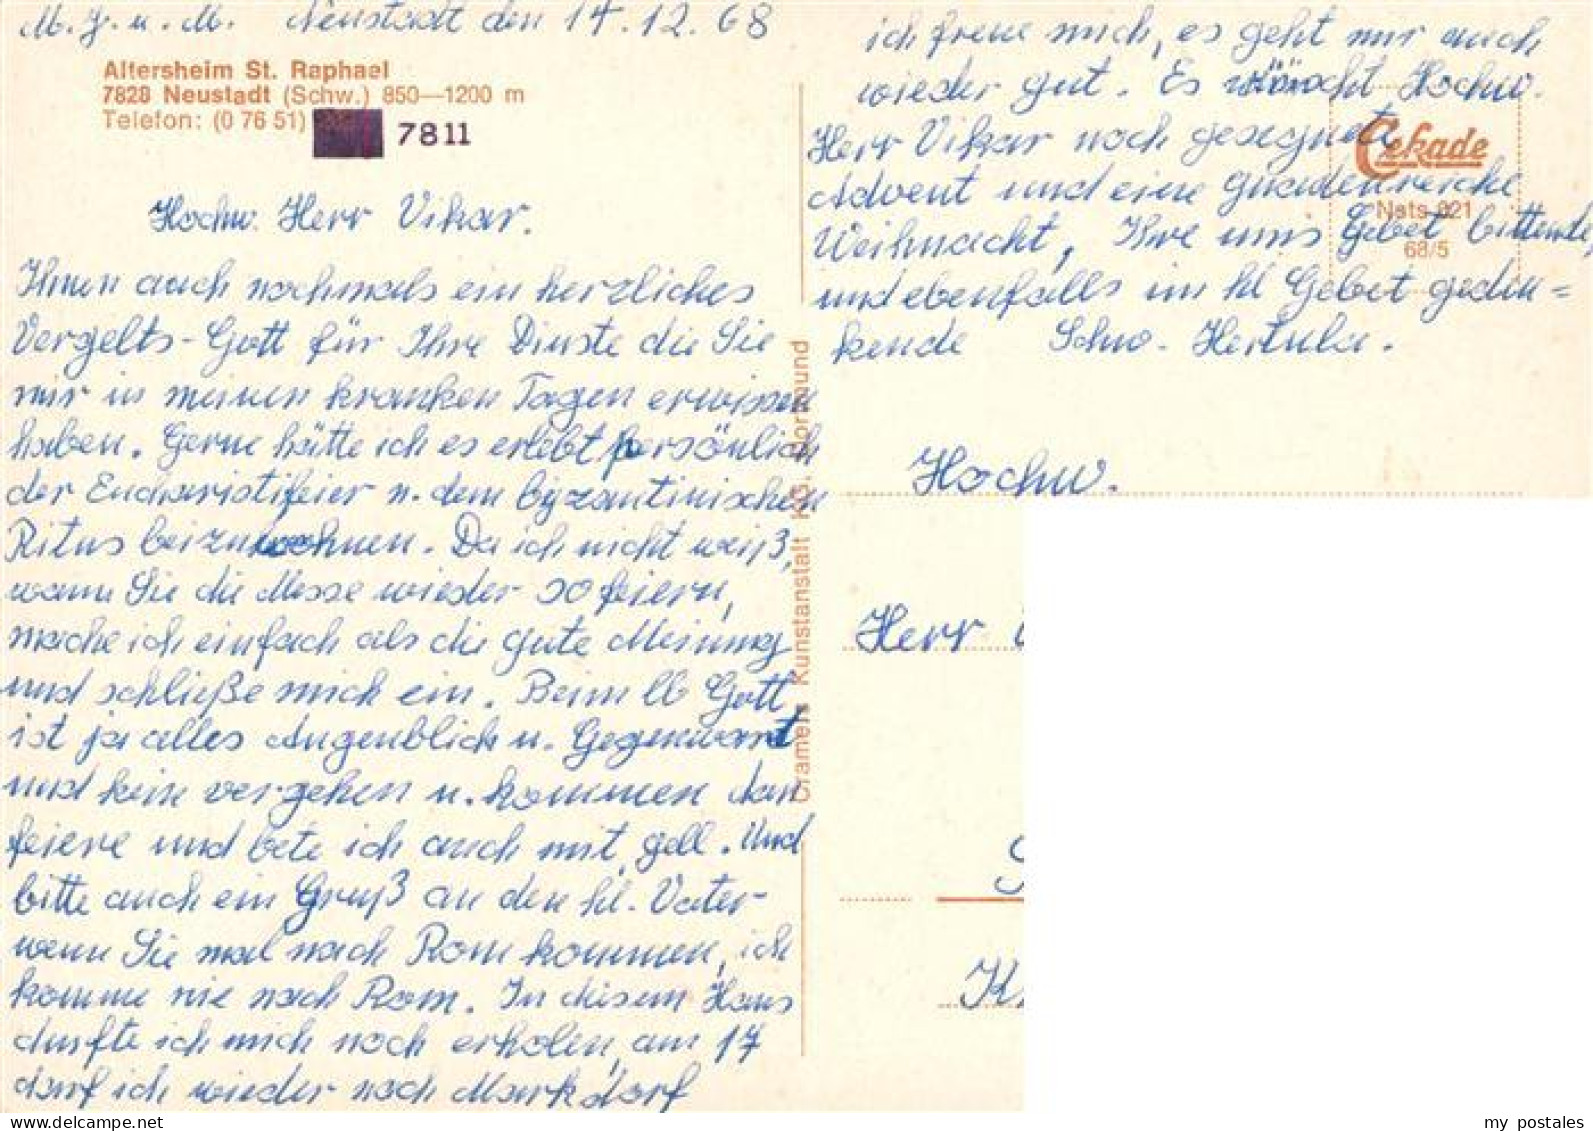 M. J. u. M. Neustadt den 14.12.68
Altersheim St. Raphael
7828 Neustadt (Schw.) 850—1200 m
Telefon: (0 76 51) 7811
Hochw. Herr Vikar.
Ihnen auch nochmals ein herzliches
Vergelts-Gott für Ihre Dienste die Sie
mir in meinen kranken Tagen erwiesen
haben. Gerne hätte ich es erlebt persönlich
der Eucharistifeier n. dem byzantinischen
Ritus beizuwohnen. Da ich nicht weiß,
wann Sie die Messe wieder so feiern,
mache ich einfach als die gute Meinung
und schließe mich ein. Beim lb Gott
ist ja alles Augenblick u. Gegenwart
und kein vergehen u. kommen dan
feiere und bete ich auch mit, gell. Und
bitte auch ein Gruß an den hl. Vater-
wenn Sie mal nach Rom kommen, ich
komme nie nach Rom. In diesem Haus
durfte ich mich noch erholen, am 17
darf ich wieder nach Markdorf
ich freue mich, es geht mir auch
wieder gut. Es wünscht Hochw.
Herr Vikar noch gesegnete
Advent und eine gnadenreiche
Weihnacht, Ihre ums Gebet bittende,
und ebenfalls im hl Gebet geden=
kende Schw.
Cekade
Nsts 821
68/5
Cramers Kunstanstalt KG. Dortmund
Hochw.
Herr
my postales